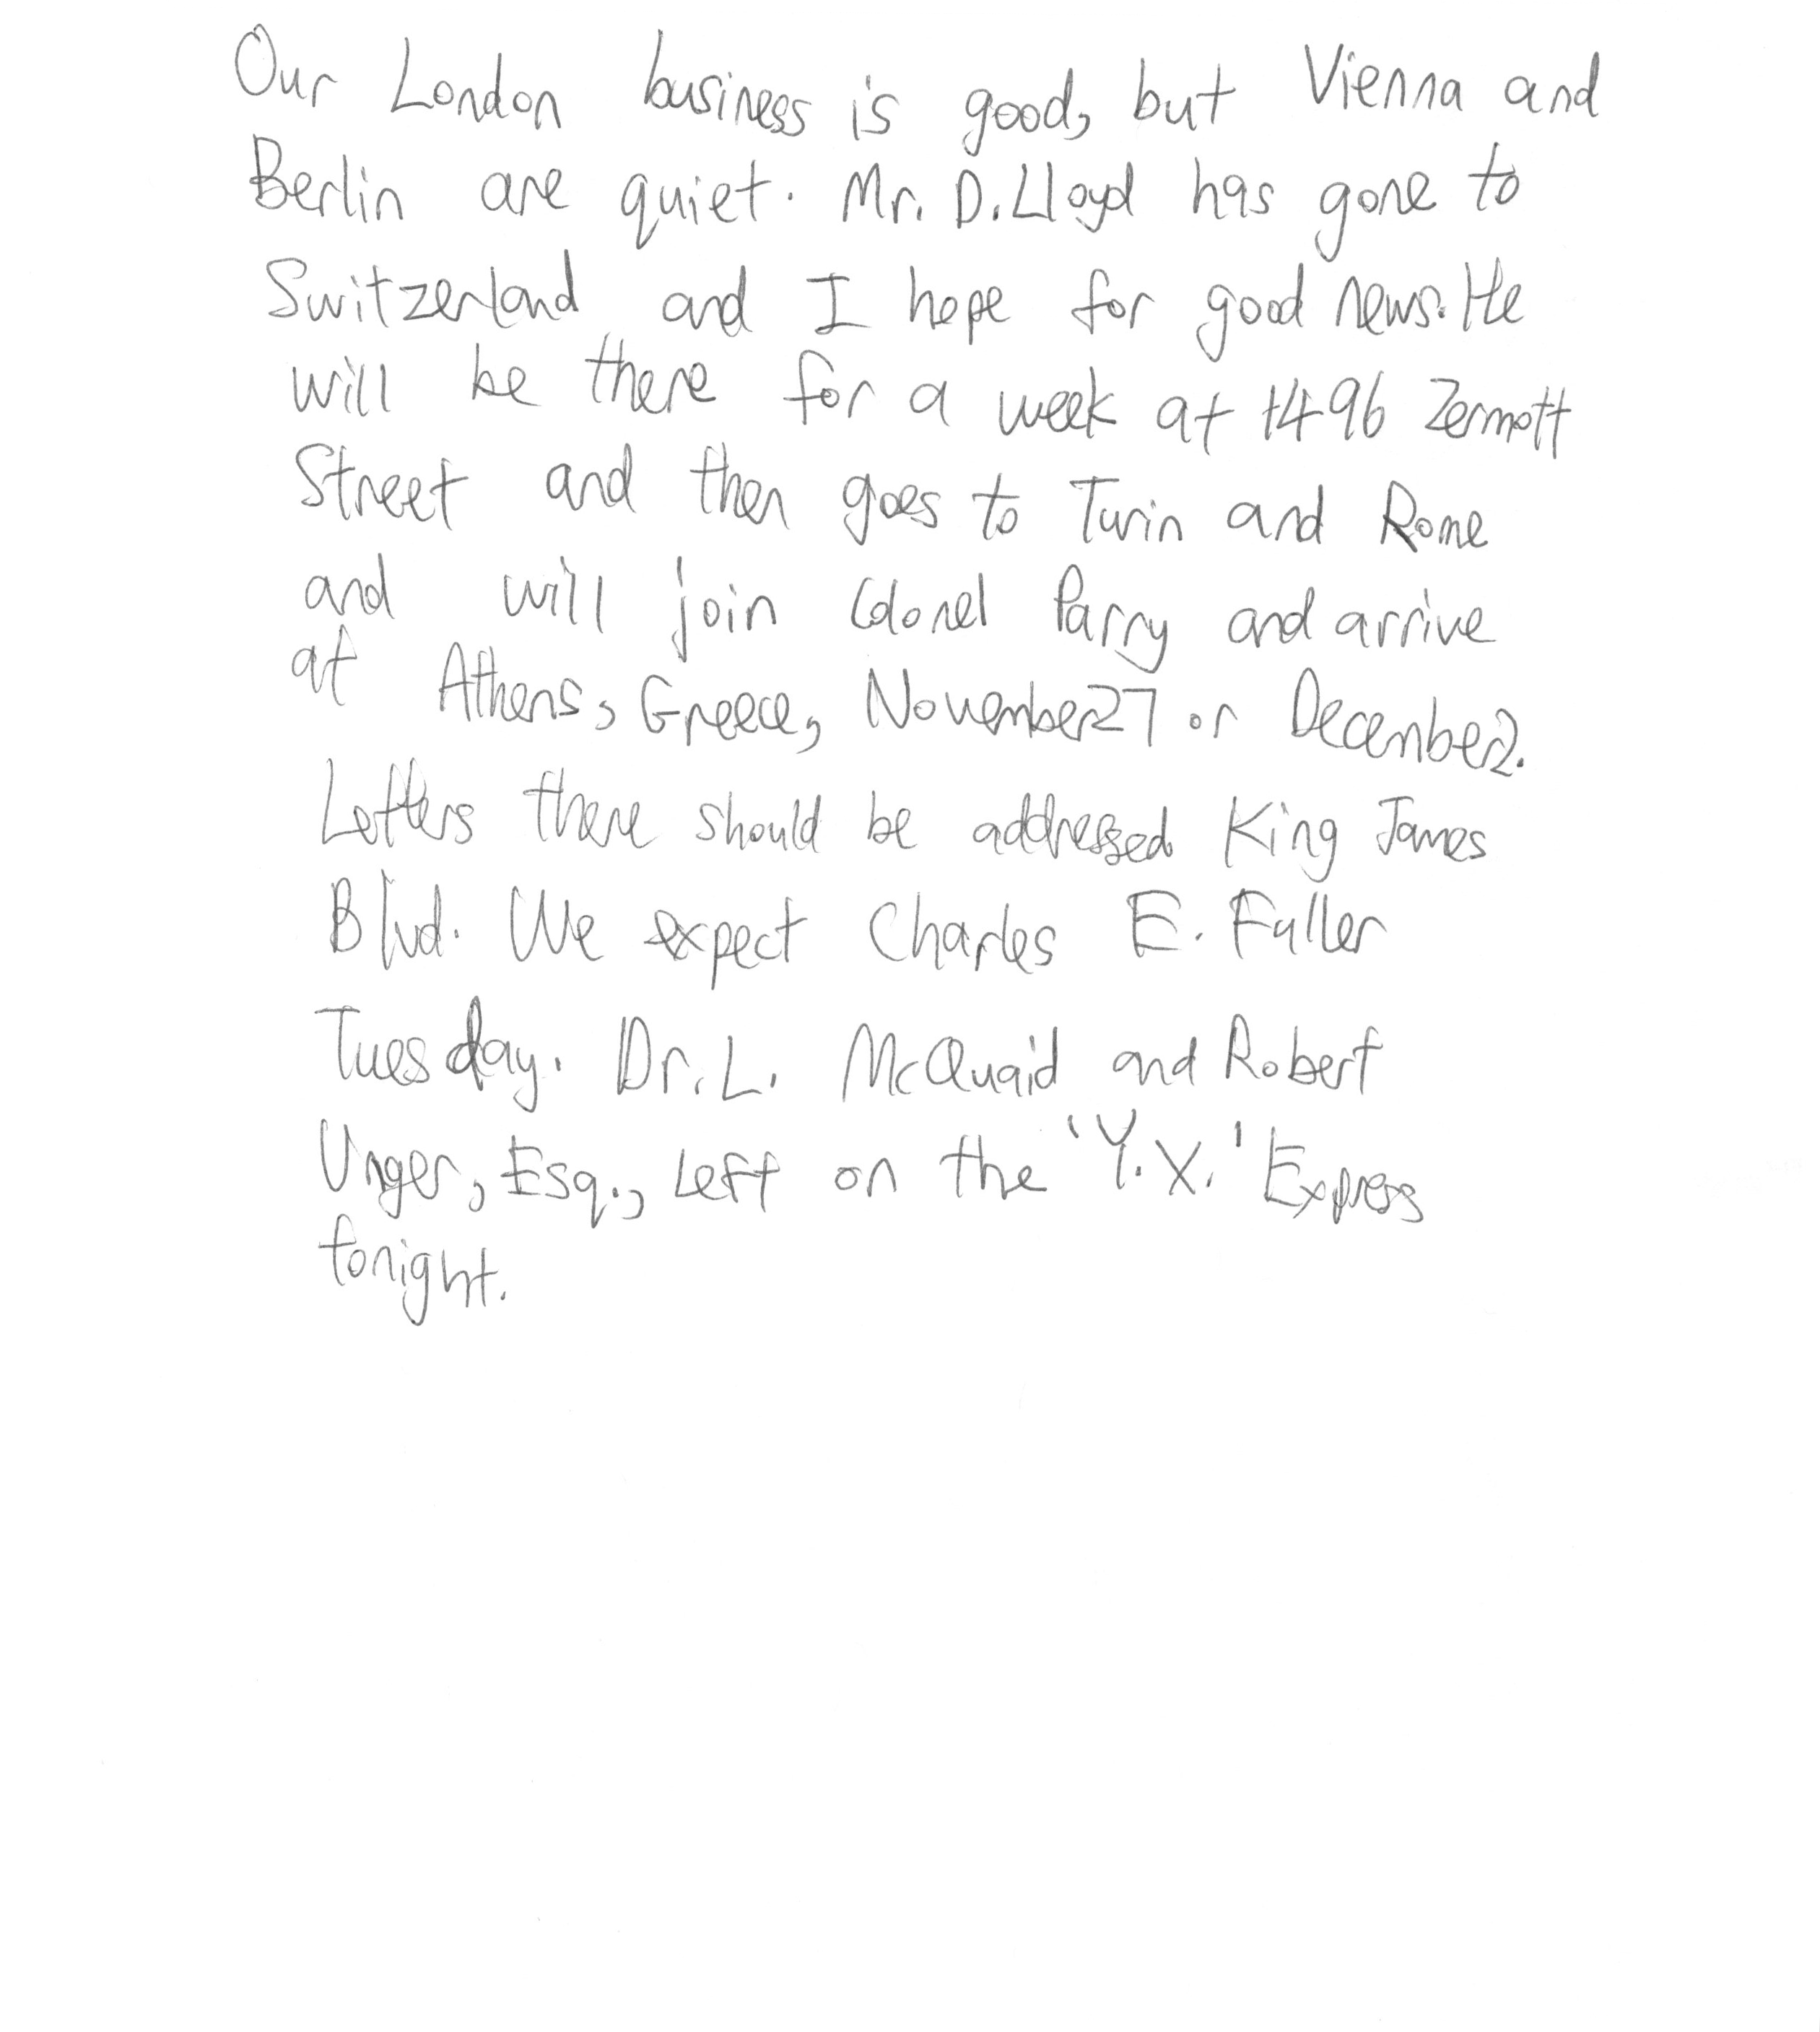 Our London business is good, but Vienna and
Berlin are quiet. Mr. D. Lloyd has gone to
Switzerland and I hope for good news. He
will be there for a week at 1496 Zermott
Street and then goes to Turin and Rome
and will join Colonel Parry and arrive
at Athens, Greece, November 27 or December 2.
Letters there should be addressed King James
Blvd. We expect Charles E. Fuller
Tuesday. Dr. L. McQuaid and Robert
Unger, Esq., left on the 'Y.X.' Express
tonight.